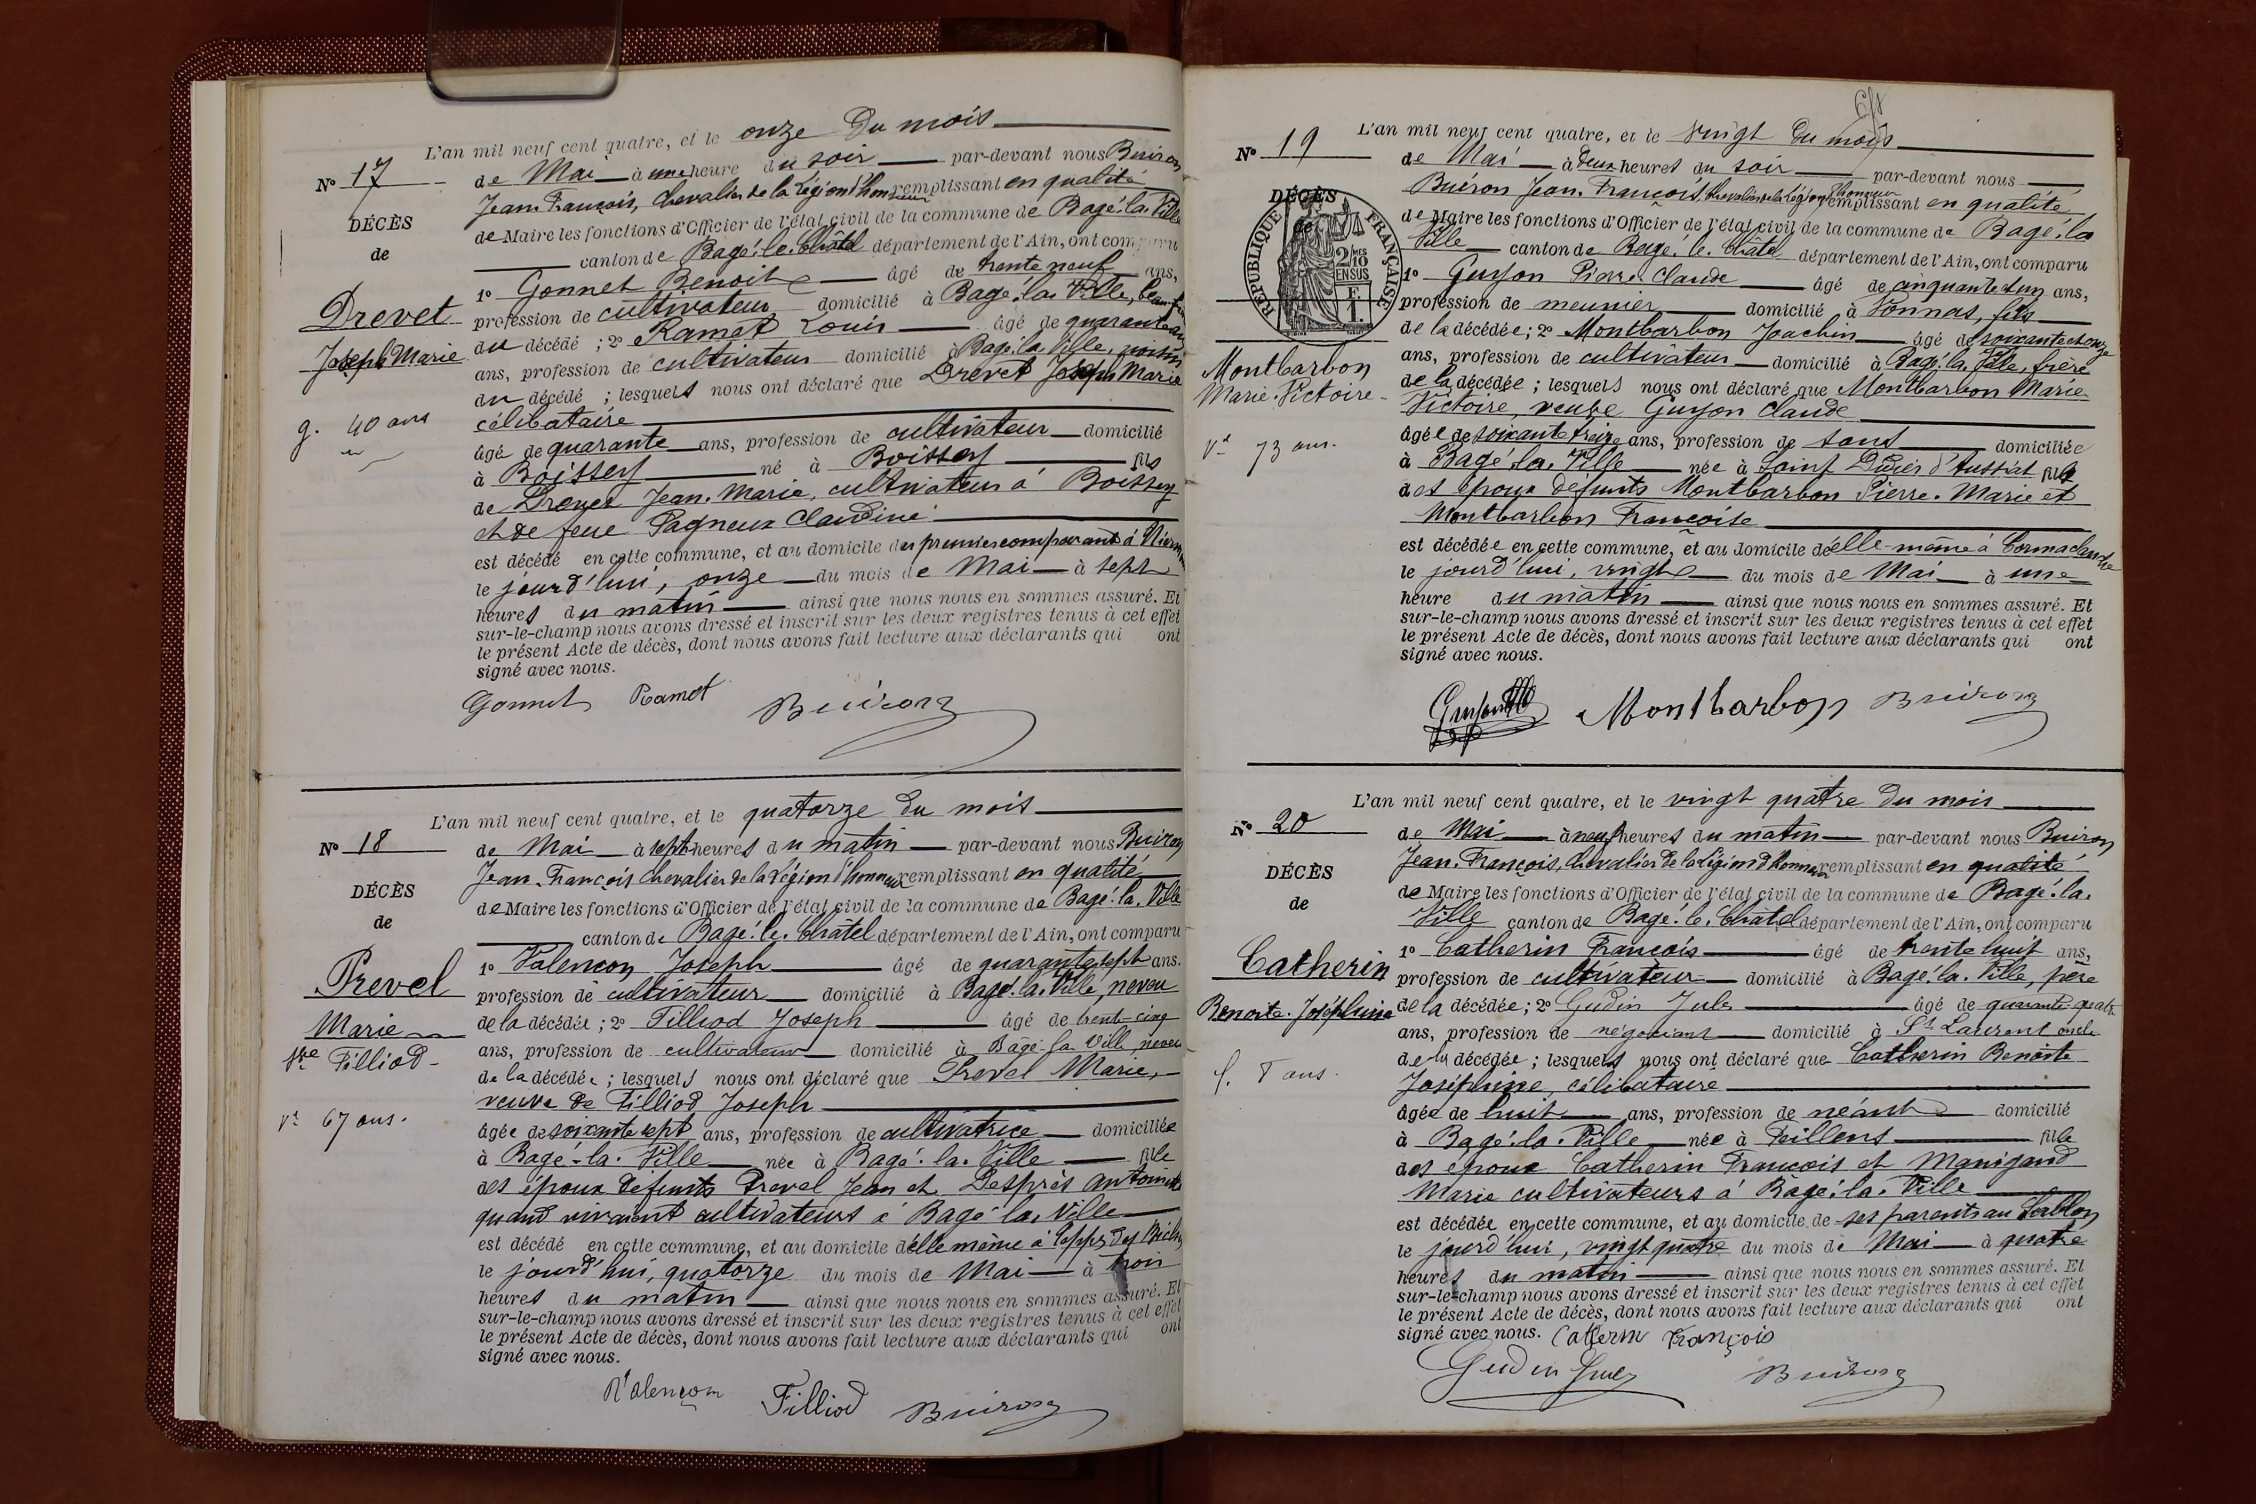 L'an mil neuf cent quatre, et le onze du mois
N° 17
de Mai à une heure du soir par-devant nous Buiron
Jean-François, Chevalier de la Légion d'honneur remplissant en qualité
DÉCÈS
de Maire les fonctions d'Officier de l'état civil de la commune de Bagé-la-Ville
de
canton de Bagé-le-Châtel département de l'Ain, ont comparu
1° Gonnet Benoit âgé de trente neuf ans,
Drevet
profession de cultivateur domicilié à Bagé-la-Ville, beau-frère
du décédé ; 2° Ramet Louis âgé de quarante
Joseph Marie
ans, profession de cultivateur domicilié à Bagé-la-Ville, voisin
du décédé ; lesquels nous ont déclaré que Drevet Joseph Marie
g. 40 ans
célibataire
âgé de quarante ans, profession de cultivateur domicilié
à Boissey né à Boissey fils
de Drevet Jean-Marie, cultivateur à Boissey
et de feue Pagneux Claudine
est décédé en cette commune, et au domicile du premier comparant à
le jourd'hui, onze du mois de Mai à sept
heures du matin ainsi que nous nous en sommes assuré. Et
sur-le-champ nous avons dressé et inscrit sur les deux registres tenus à cet effet
le présent Acte de décès, dont nous avons fait lecture aux déclarants qui ont
signé avec nous.
Gonnet Ramet Buiron
L'an mil neuf cent quatre, et le quatorze du mois
N° 18
de Mai à sept heures du matin par-devant nous Buiron
Jean-François Chevalier de la Légion d'honneur remplissant en qualité
DÉCÈS
de Maire les fonctions d'Officier de l'état civil de la commune de Bagé-la-Ville
de
canton de Bagé-le-Châtel département de l'Ain, ont comparu
1° Valençon Joseph âgé de quarante sept ans.
Prevel
profession de cultivateur domicilié à Bagé-la-Ville, neveu
Marie
de la décédée ; 2° Filliod Joseph âgé de trent-cinq
Vve Filliod
ans, profession de cultivateur domicilié à Bagé-la Ville, neveu
de la décédée ; lesquels nous ont déclaré que Prevel Marie,
veuve de Filliod Joseph
Ve 67 ans.
âgée de soixante sept ans, profession de cultivatrice domiciliée
à Bagé-la-Ville née à Bagé-la-Ville fille
des époux défunts Prevel Jean et Desprès Antoinette
quand vivaient cultivateurs à Bagé-la-Ville
est décédé en cette commune, et au domicile d'elle même à
le jourd'hui, quatorze du mois de Mai à trois
heures du matin ainsi que nous nous en sommes assuré. Et
sur-le-champ nous avons dressé et inscrit sur les deux registres tenus à cet effet
le présent Acte de décès, dont nous avons fait lecture aux déclarants qui ont
signé avec nous.
Valençon Filliod Buiron
L'an mil neuf cent quatre, et le vingt du mois
N° 19
de Mai à deux heures du soir par-devant nous
Buiron Jean-François, Chevalier de la Légion d'honneur remplissant en qualité
DÉCÈS
de
RÉPUBLIQUE FRANÇAISE
2/10 EN SUS
de Maire les fonctions d'Officier de l'état civil de la commune de Bagé-la
Ville canton de Bagé-le-Châtel département de l'Ain, ont comparu
1° Guyon Pierre Claude âgé de cinquante et un ans,
profession de meunier domicilié à Vonnas, fils
de la décédée ; 2° Montbarbon Joachin âgé de soixante et onze
Montbarbon
ans, profession de cultivateur domicilié à Bagé-la-Ville, frère
Marie-Victoire
de la décédée ; lesquels nous ont déclaré que Montbarbon Marie
Victoire, veuve Guyon Claude
Ve 73 ans.
âgée de soixante treize ans, profession de sans domiciliée
à Bagé-la-Ville née à Saint Didier d'Aussiat fille
des époux défunts Montbarbon Pierre-Marie et
Montbarbon Françoise
est décédée en cette commune, et au domicile d'elle-même à Cormaclanche
le jourd'hui, vingt du mois de Mai à une
heure du matin ainsi que nous nous en sommes assuré. Et
sur-le-champ nous avons dressé et inscrit sur les deux registres tenus à cet effet
le présent Acte de décès, dont nous avons fait lecture aux déclarants qui ont
signé avec nous.
Guyon Montbarbon Buiron
L'an mil neuf cent quatre, et le vingt quatre du mois
N° 20
de Mai à neuf heures du matin par-devant nous Buiron
Jean-François, Chevalier de la Légion d'honneur remplissant en qualité
DÉCÈS
de Maire les fonctions d'Officier de l'état civil de la commune de Bagé-la-
de
Ville canton de Bagé-le-Châtel département de l'Ain, ont comparu
1° Catherin François âgé de trente huit ans,
Catherin
profession de cultivateur domicilié à Bagé-la-Ville, père
Benoite-Joséphine
de la décédée ; 2° Gudin Jules âgé de quarante-quatre
ans, profession de négociant domicilié à St Laurent oncle
de la décédée ; lesquels nous ont déclaré que Catherin Benoite
f. 8 ans.
Joséphine, célibataire
âgée de huit ans, profession de néant domicilié
à Bagé-la-Ville née à Feillens fille
des époux Catherin François et Manigand
Marie cultivateurs à Bagé-la-Ville
est décédée en cette commune, et au domicile de ses parents au Sablon
le jourd'hui, vingt quatre du mois de Mai à quatre
heures du matin ainsi que nous nous en sommes assuré. Et
sur-le-champ nous avons dressé et inscrit sur les deux registres tenus à cet effet
le présent Acte de décès, dont nous avons fait lecture aux déclarants qui ont
signé avec nous. Catherin François
Gudin Jules Buiron